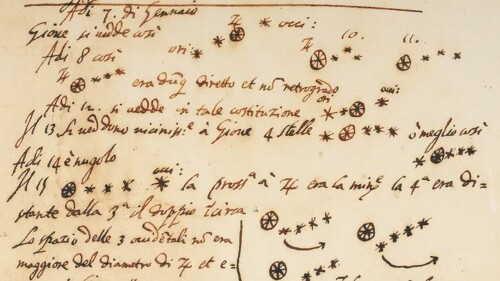 Adi 7. di Gennaio
Giove si vedde così ♃ occi:
Adi 8 così ori: 10. 11.
♃ era dũq diretto et nõ retrogrado
ori occi:
Adi 12. si vedde in tale costituzione
Il 13 si veddono vicinissᵉ à Giove 4 stelle ò meglio così
Adi 14 è nugolo
Il 15 occi: la prossᵃ à ♃ era la minᵉ la 4ᵃ era di-
stante dalla 3ᵃ il doppio circa
Lo spazio delle 3 occidẽtali nõ era
maggiore del diametro di ♃ et e-